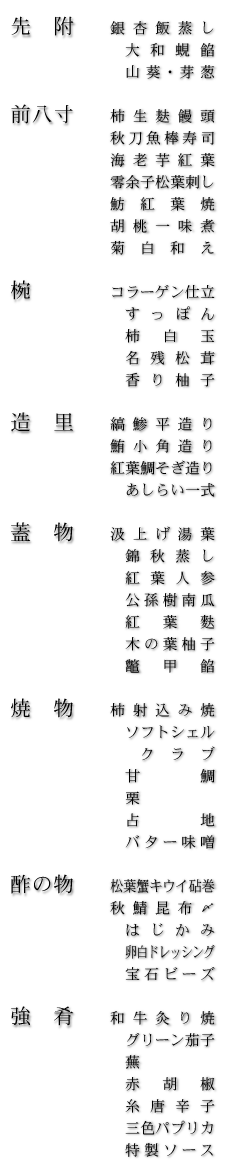 先附 銀杏飯蒸し
大和蜆餡
山葵・芽葱
前八寸 柿生麩饅頭
秋刀魚棒寿司
海老芋紅葉
零余子松葉刺し
魴紅葉焼
胡桃一味煮
菊白和え
椀 コラーゲン仕立
すっぽん
柿白玉
名残松茸
香り柚子
造里 縞鯵平造り
鮪小角造り
紅葉鯛そぎ造り
あしらい一式
蓋物 汲上げ湯葉
錦秋蒸し
紅葉人参
公孫樹南瓜
紅葉麩
木の葉柚子
鼈甲餡
焼物 柿射込み焼
ソフトシェル
クラブ
甘鯛
栗
占地
バター味噌
酢の物 松葉蟹キウイ砧巻
秋鯖昆布〆
はじかみ
卵白ドレッシング
宝石ビーズ
強肴 和牛灸り焼
グリーン茄子
蕪
赤胡椒
糸唐辛子
三色パプリカ
特製ソース